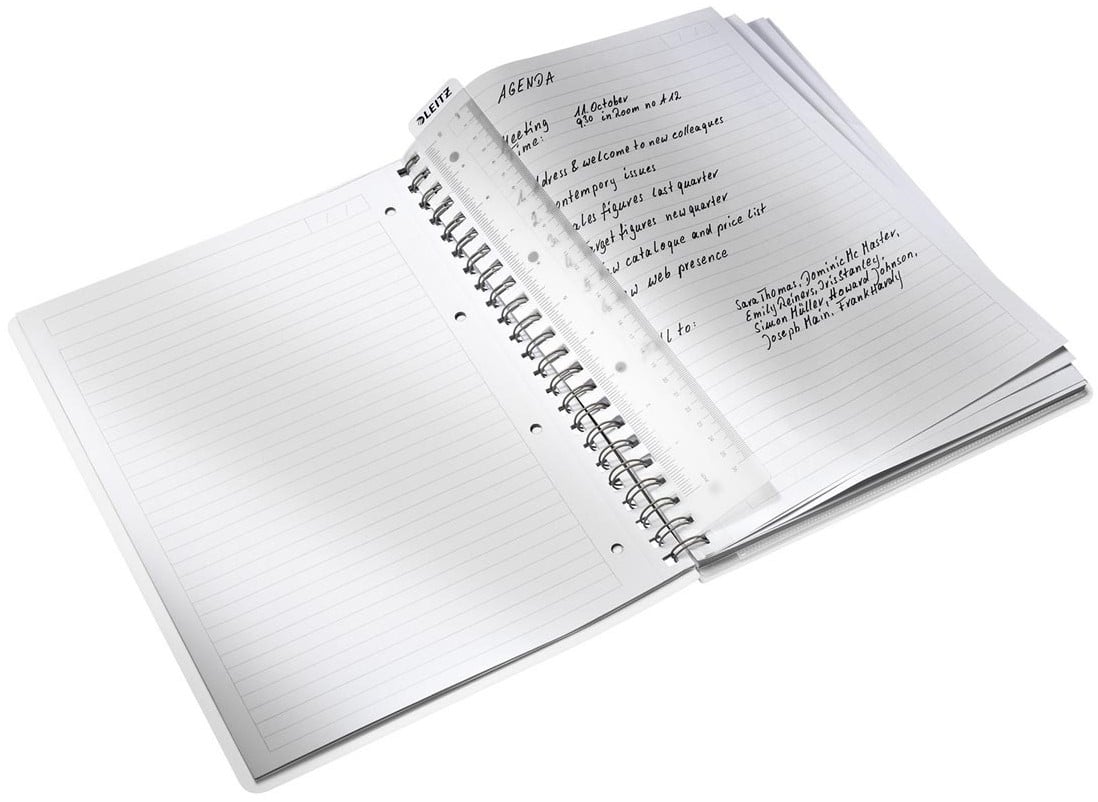 LEITZ
AGENDA
Meeting 11. October
Time: 9.30 in Room no A12
ddress & welcome to new colleagues
ontempory issues
ales figures last quarter
arget figures new quarter
w catalogue and price list
w web presence
ll to: Sara Thomas, Dominic Mc Master,
Emily Reiners, Iris Stanley,
Simon Müller, Howard Johnson,
Joseph Main, Frank Hardy